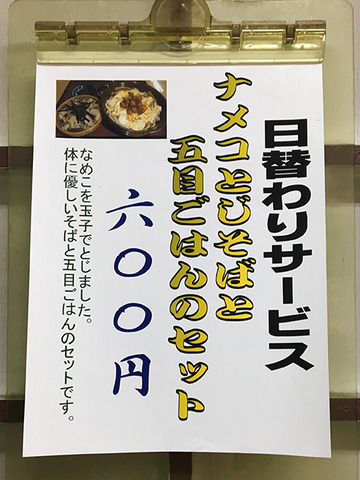 日替わりサービス
ナメコとじそばと
五目ごはんのセット
六〇〇円
なめこを玉子でとじました。
体に優しいそばと五目ごはんのセットです。